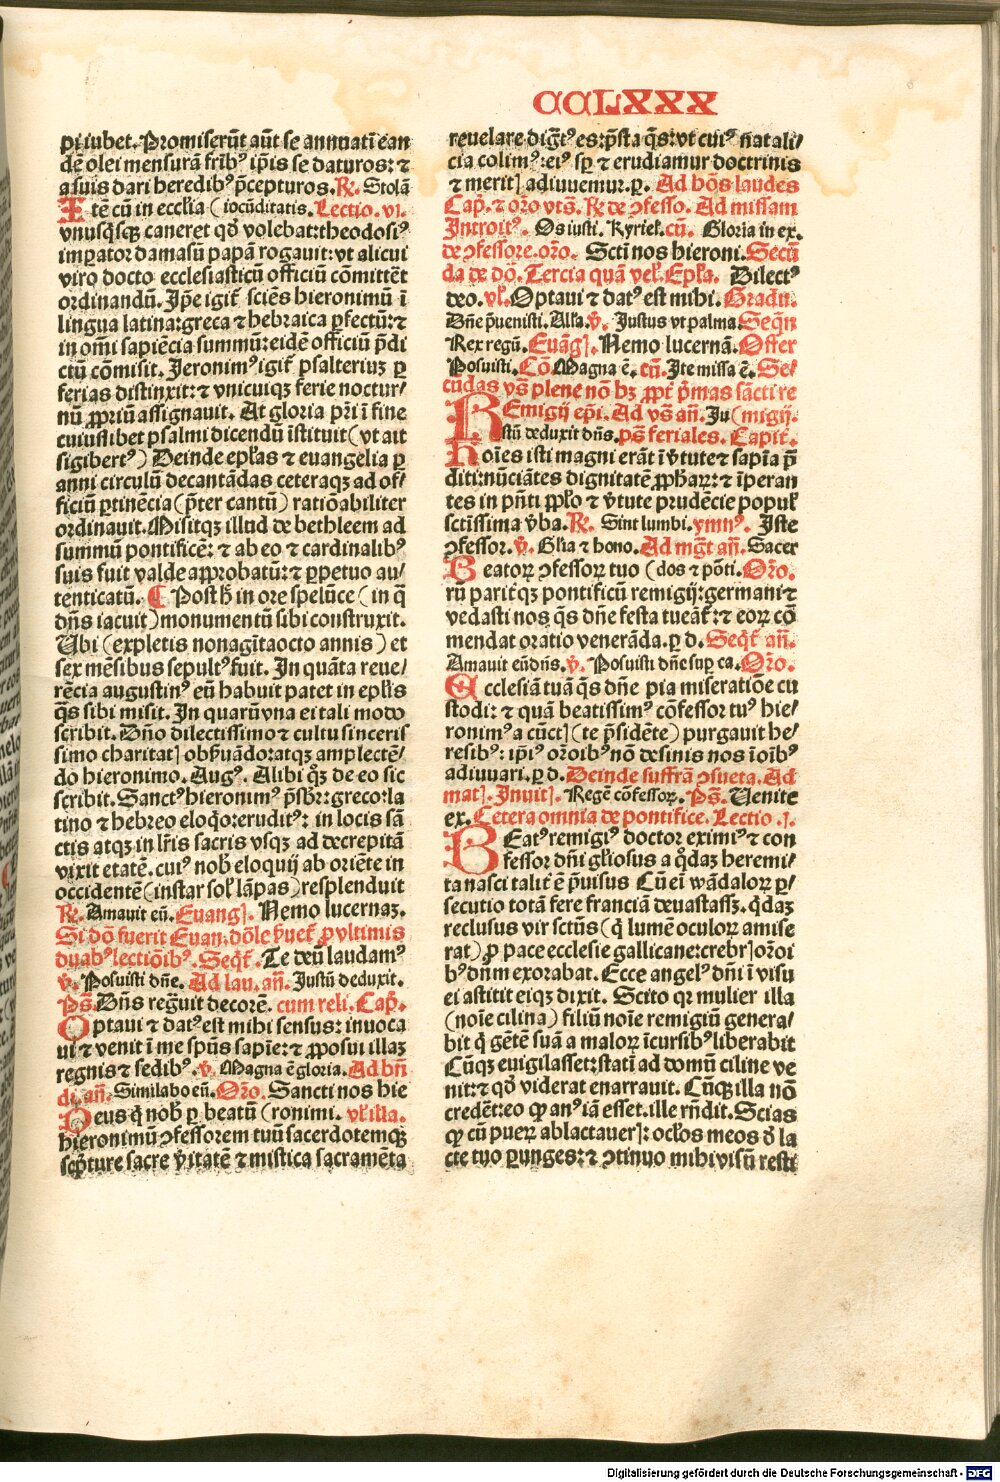 CCLXXX
pi iubet. Promiserūt aūt se annuatī ean
dē olei mensurā fr̄ibꝰ ip̄is se daturos: ⁊
a suis dari heredibꝰ p̄cepturos. R̄. Stolā
Itē cū in ecclīa (iocūditatis. Lectio. vi.
vnusq̄sqꝫ caneret qd̄ volebat: theodosiꝰ
imꝑator damasū papā rogauit: vt alicui
viro docto ecclesiasticū officiū cōmittēt
ordinandū. Ip̄e igit̄ sciēs hieronimū ī
lingua latina: greca ⁊ hebraica ꝑfectū: ⁊
in om̄i sapiēcia summū: eidē officiū p̄di
ctū cōmisit. Jeronimꝰ igit̄ psalteriuꝫ ꝑ
ferias distinxit: ⁊ vnicuiqꝫ ferie noctur/
nū ꝓpriū assignauit. At gloria pr̄i ī fine
cuiuslibet psalmi dicendū īstituit (vt ait
sigibertꝰ) Deinde ep̄las ⁊ euangelia ꝑ
anni circulū decantādas ceteraqꝫ ad of/
ficiū ꝑtinēcia (p̄ter cantū) ratiōabiliter
ordinauit. Misitqꝫ illud de bethleem ad
summū pontificē: ⁊ ab eo ⁊ cardinalibꝰ
suis fuit valde aꝓbatū: ⁊ ꝑpetuo au/
tenticatū. ¶ Post h̄ in ore spelūce (in q̄
dn̄s iacuit) monumētū sibi construxit.
Vbi (expletis nonagītaocto annis) et
sex mēsibus sepultꝰ fuit. In quāta reue/
rēcia augustinꝰ eū habuit patet in ep̄lis
q̄s sibi misit. In quarū vna ei tali modo
scribit. Dn̄o dilectissimo ⁊ cultu sinceris
simo charitatꝭ obẜuādo: atqꝫ amplectē/
do hieronimo. Augꝰ. Alibi q̄ꝫ de eo sic
scribit. Sanctꝰ hieronimꝰ p̄sbr̄: greco: la
tino ⁊ hebreo eloq̇o: eruditꝰ: in locis sā
ctis atqꝫ in lr̄is sacris vsqꝫ ad decrepitā
vixit etatē. cuiꝰ nob̄ eloquij ab oriēte in
occidentē (instar sol̄ lāpas) resplenduit
R̄. Amauit eū. Euangꝭ. Nemo lucernaꝫ.
Si dō fuerit Euan. dōle v̄uet̄ ꝓ vltimis
duabꝰ lectiōibꝰ. Seqt̄. Te deū laudamꝰ
v̄. Posuisti dn̄e. Ad lau. an̄. Justū deduxit.
Ps̄. Dn̄s reg̈uit decorē. cum reli. Cap̄.
Optaui ⁊ datꝰ est mihi sensus: inuoca
ui ⁊ venit ī me spūs sapīe: ⁊ ꝓposui illaꝫ
regnis ⁊ sedibꝰ. v̄. Magna ē gloria. Ad bn̄
di. an̄. Similabo eū. Or̄o. Sancti nos hie
Deus q̇ nob̄ ꝑ beatū (ronimi. vl̄ illa.
hieronimū ↄfessorem tuū sacerdotemqꝫ
scp̄ture sacre v̄itatē ⁊ mistica sacramēta
reuelare digtꝰ es: p̄sta q̄s: vt cuiꝰ natali/
cia colimꝰ: eiꝰ sꝑ ⁊ erudiamur doctrinis
⁊ meritꝭ adiuuemur. ꝑ. Ad hōs laudes
Cap̄. ⁊ or̄o vts̄. R̄ de ↄfesso. Ad missam
Introitꝰ. Os iusti. Kyriel̄. cū. Gloria in ex.
de ↄfessore. or̄o. Scti nos hieroni. Secū
da de dō. Tercia quā vel̄. Epl̄a. Dilectꝰ
deo. vl̄. Optaui ⁊ datꝰ est mihi. Gradu.
Dn̄e p̄uenisti. Alla. v̄. Justus vt palma. Seq̄n
Rex regū. Euāgꝭ. Nemo lucernā. Offer
Posuisti. Cō. Magna ē. cū. Ite missa ē. Se/
cūdas vs̄ plene nō hꝫ ꝓpt̄ p̄mas sācti re
REmigij ep̄i. Ad vs̄ an̄. Ju (migij.
stū deduxit dn̄s. ps̄ feriales. Capit̄.
Hoīes isti magni erāt ī v̄tute ⁊ sapīa p̄
diti: nūciātes dignitatē ꝓphaꝝ: ⁊ īperan
tes in pn̄ti ppl̄o ⁊ v̄tute prudēcie popul̄
sctīssima v̄ba. R̄. Sint lumbi. ymnꝰ. Iste
ↄfessor. v̄. Gl̄ia ⁊ hono. Ad mgt̄ an̄. Sacer
Beatoꝝ ↄfessoꝝ tuo (dos ⁊ pōti. Or̄o.
rū paritqꝫ pontificū remigij: germani ⁊
vedasti nos q̄s dn̄e festa tueāt̄: ⁊ eoꝝ cō
mendat oratio venerāda. ꝑ d. Seqt̄ an̄.
Amauit eū dn̄s. v̄. Posuisti dn̄e suꝑ ca. Or̄o.
Ecclesiā tuā q̄s dn̄e pia miseratiōe cu
stodi: ⁊ quā beatissimꝰ cōfessor tuꝰ hie/
ronimꝰ a cūctꝭ (te p̄sidēte) purgauit he/
resibꝰ: ip̄iꝰ or̄oibꝰ nō desinis nos īoibꝰ
adiuuari. ꝑ d. Deinde suffrā ↄsueta. Ad
matꝭ. Inuitꝭ. Regē cōfessoꝝ. Ps̄. Venite
ex. Cetera omnia de pontifice. Lectio .j.
BEatꝰ remigiꝰ doctor eximiꝰ ⁊ con
fessor dn̄i gl̄iosus a q̇daꝫ heremi/
ta nasci talit̄ ē p̄uisus Cū eī wādaloꝝ ꝑ/
secutio totā fere franciā deuastassꝫ. q̇daꝫ
reclusus vir sctūs (q̇ lumē oculoꝝ amise
rat) ꝓ pace ecclesie gallicane: crebrꝭ or̄oi
bꝰ dn̄m exorabat. Ecce angelꝰ dn̄i ī visu
ei astitit eiqꝫ dixit. Scito qꝛ mulier illa
(noīe cilina) filiū noīe remigiū genera/
bit q̇ gētē suā a maloꝝ īcursibꝰ liberabit
Cūqꝫ euigilasset: statī ad domū ciline ve
nit: ⁊ qd̄ viderat enarrauit. Cūqꝫ illa nō
credēt: eo ꝙ anꝰ iā esset. ille rn̄dit. Scias
ꝙ cū pueꝝ ablactauerꝭ: ocl̄os meos d̄ la
cte tuo ꝑunges: ⁊ ↄtinuo mihi visū resti
Digitalisierung gefördert durch die Deutsche Forschungsgemeinschaft - DFG